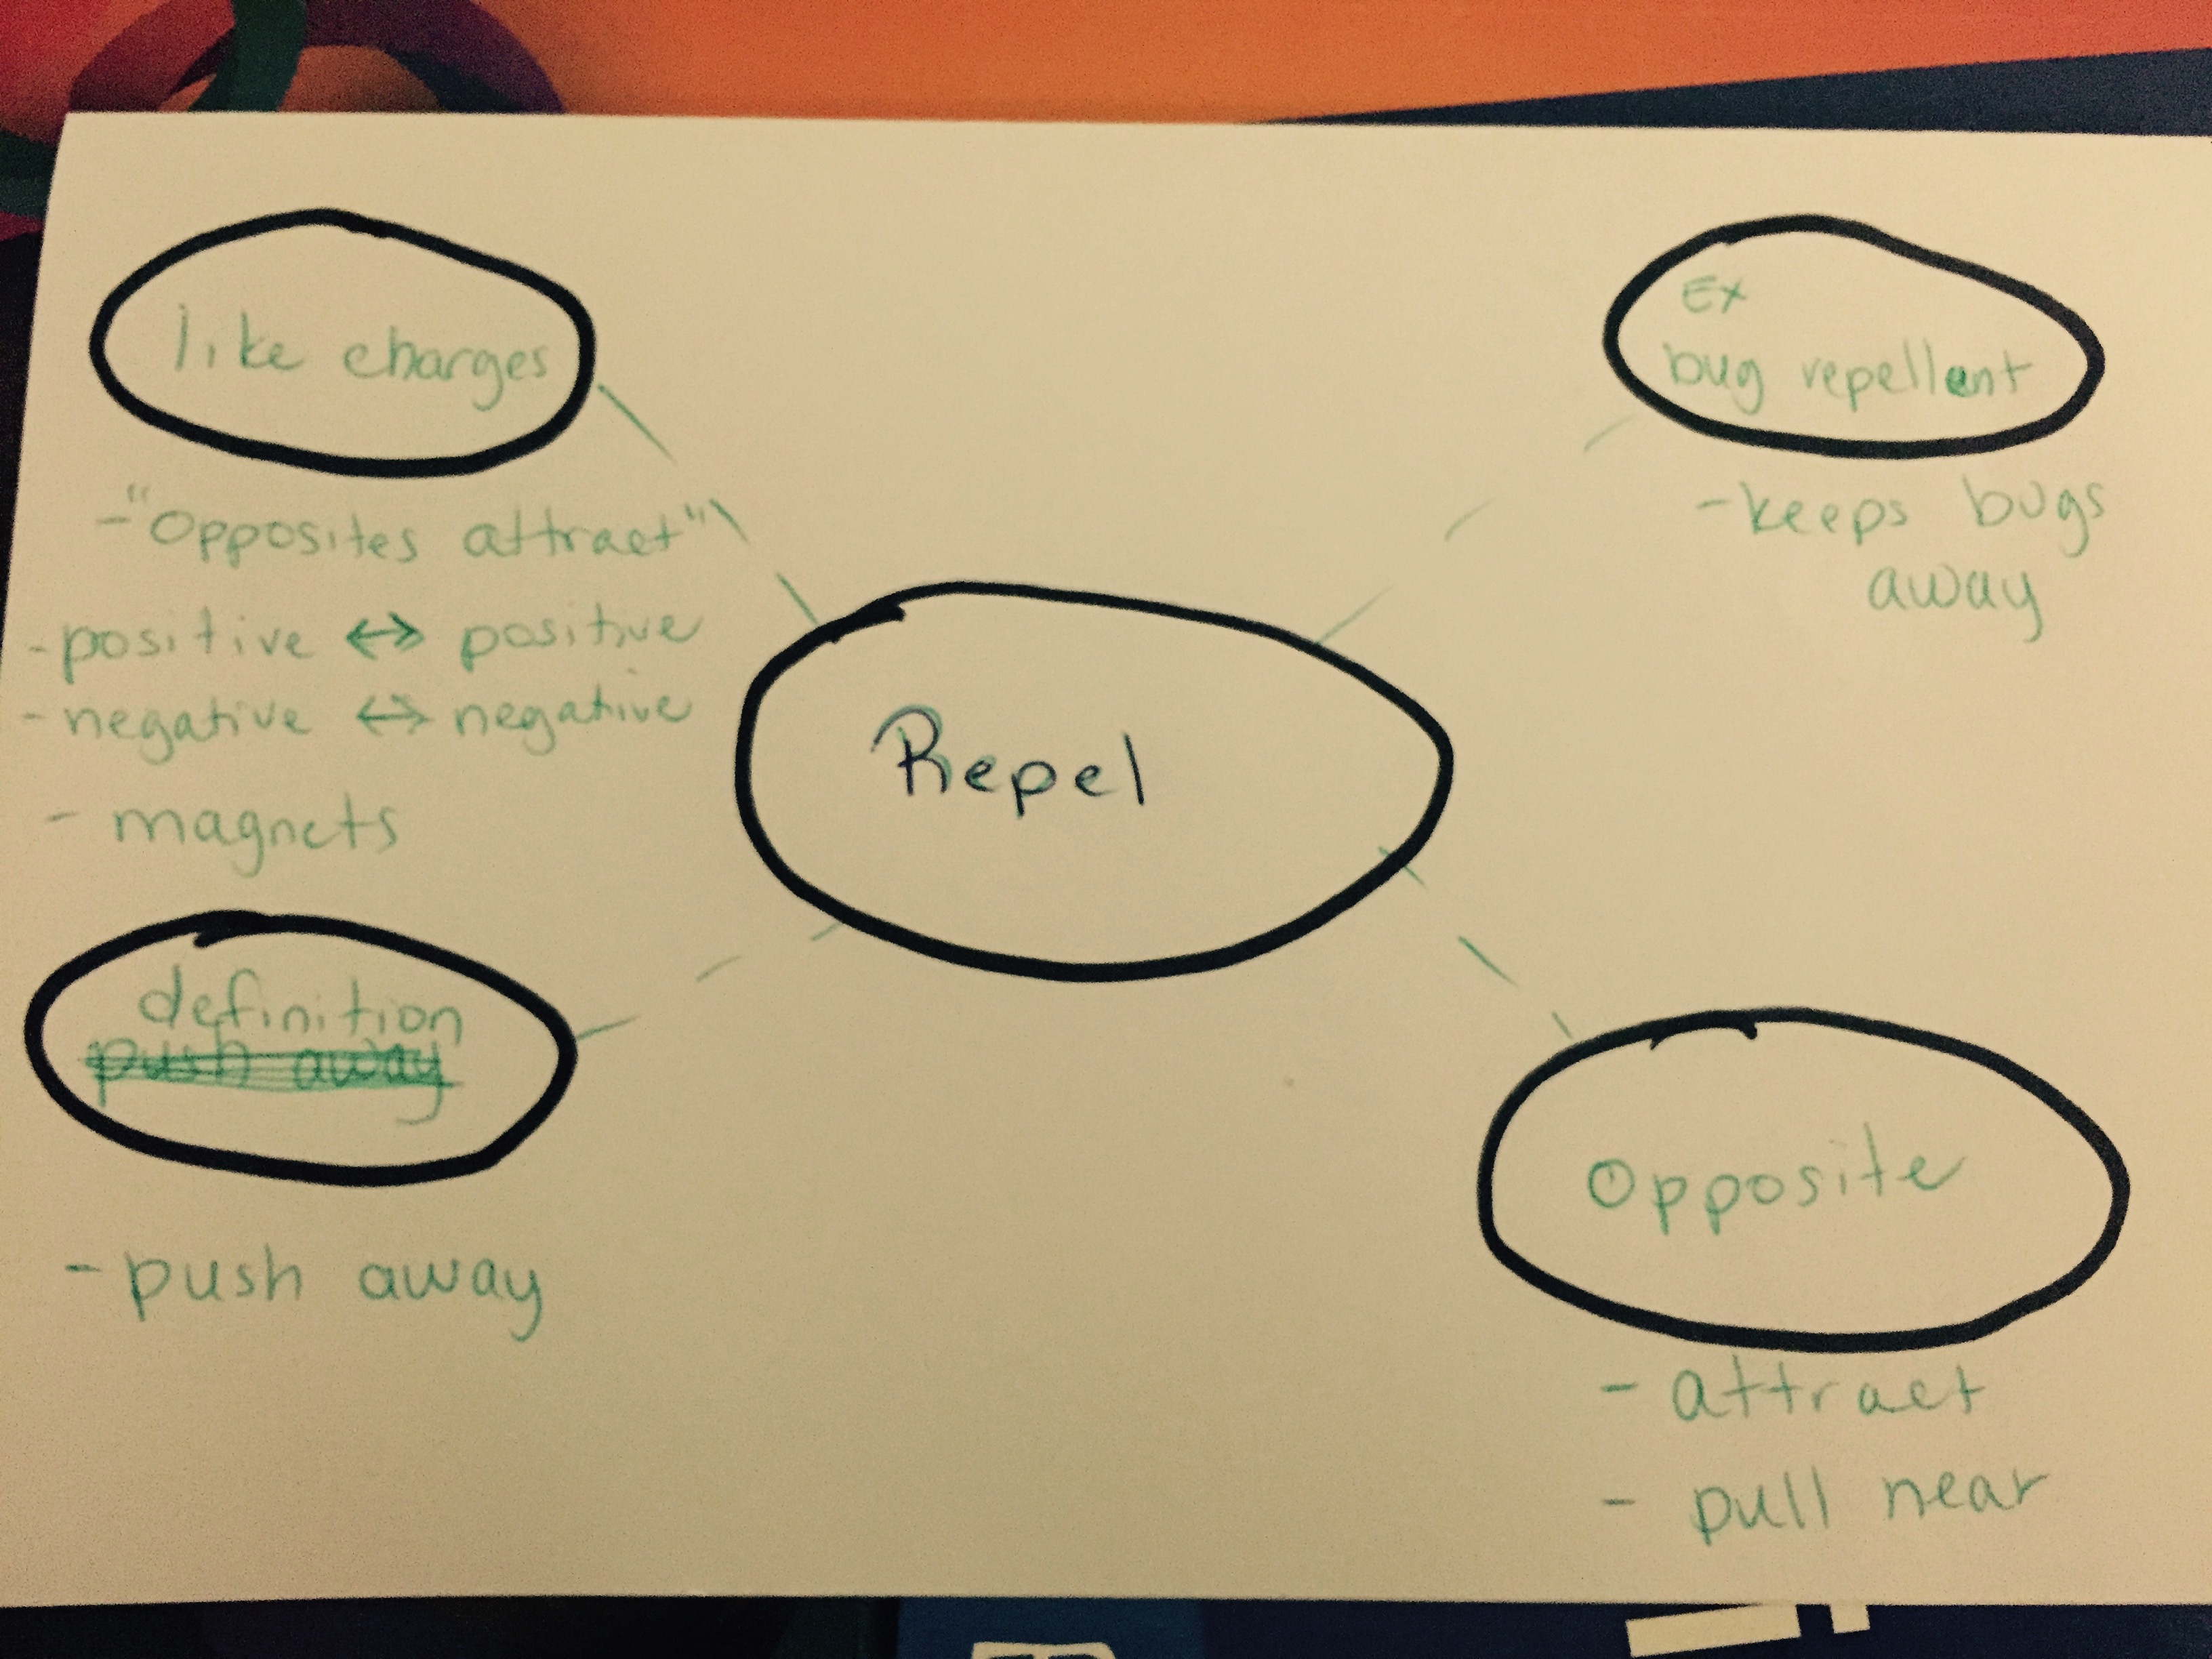 like charges
- "Opposites attract"
- positive ↔ positive
- negative ↔ negative
- magnets
Ex
bug repellent
- keeps bugs
away
Repel
definition
push away
- push away
Opposite
- attract
- pull near